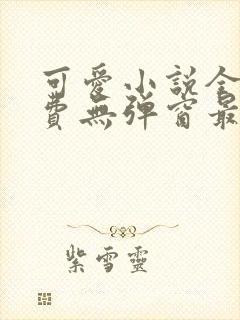 可愛小說全
費無彈窗最
紫雪靈